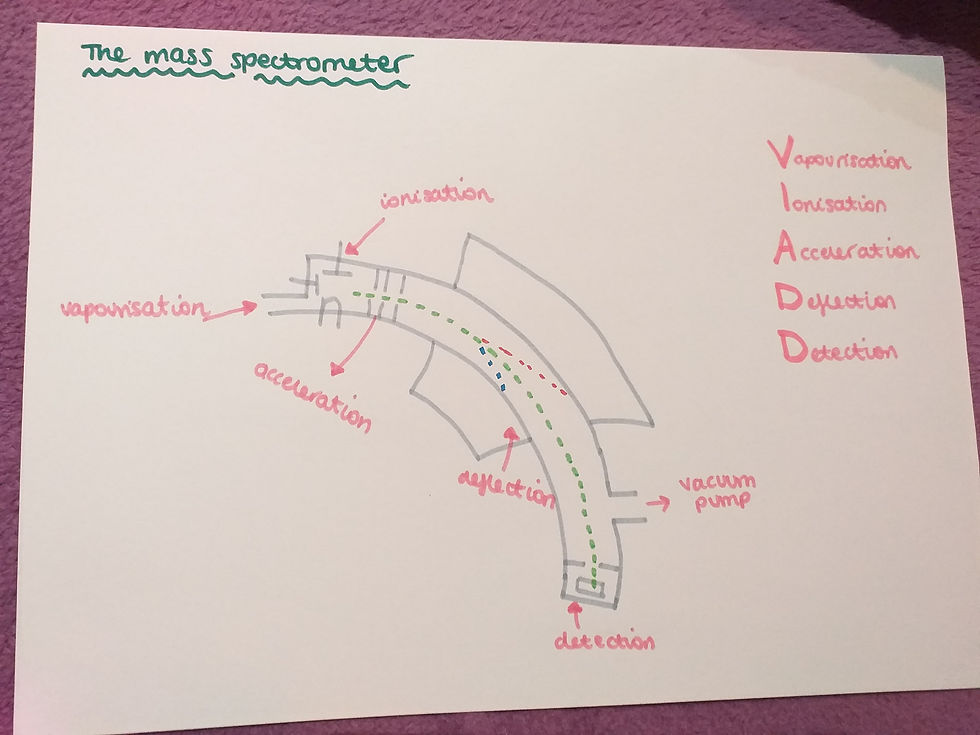 The mass spectrometer
Vapourisation
Ionisation
Acceleration
Deflection
Detection
ionisation
vapourisation
acceleration
deflection
vacuum
pump
detection